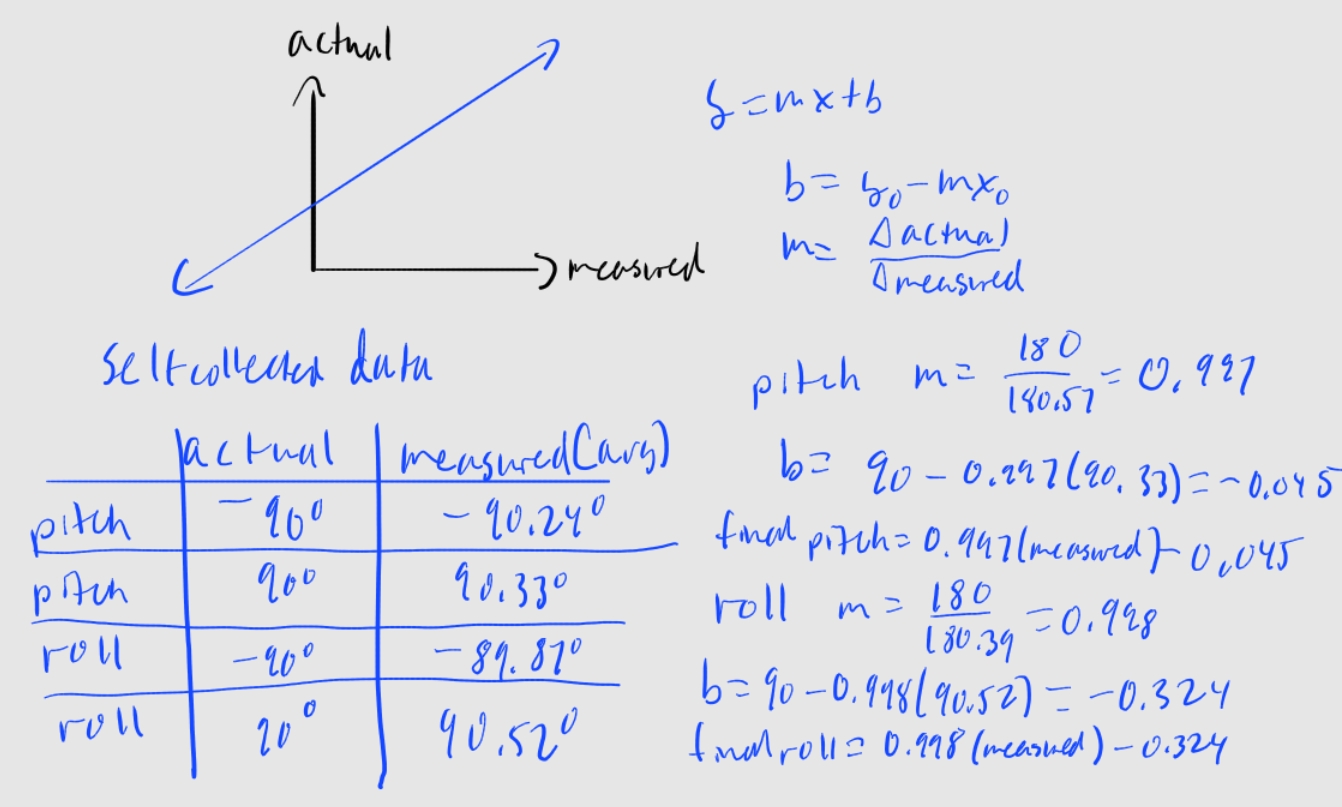 actual
measured
y = mx + b
b = y₀ - mx₀
m = Δactual / Δmeasured
Self collected data
actual | measured (avg)
pitch | -90° | -90.24°
pitch | 90° | 90.33°
roll | -90° | -89.87°
roll | 90° | 90.52°
pitch m = 180 / 180.57 = 0.997
b = 90 - 0.997(90.33) = -0.045
final pitch = 0.997(measured) - 0.045
roll m = 180 / 180.39 = 0.998
b = 90 - 0.998(90.52) = -0.324
final roll = 0.998(measured) - 0.324